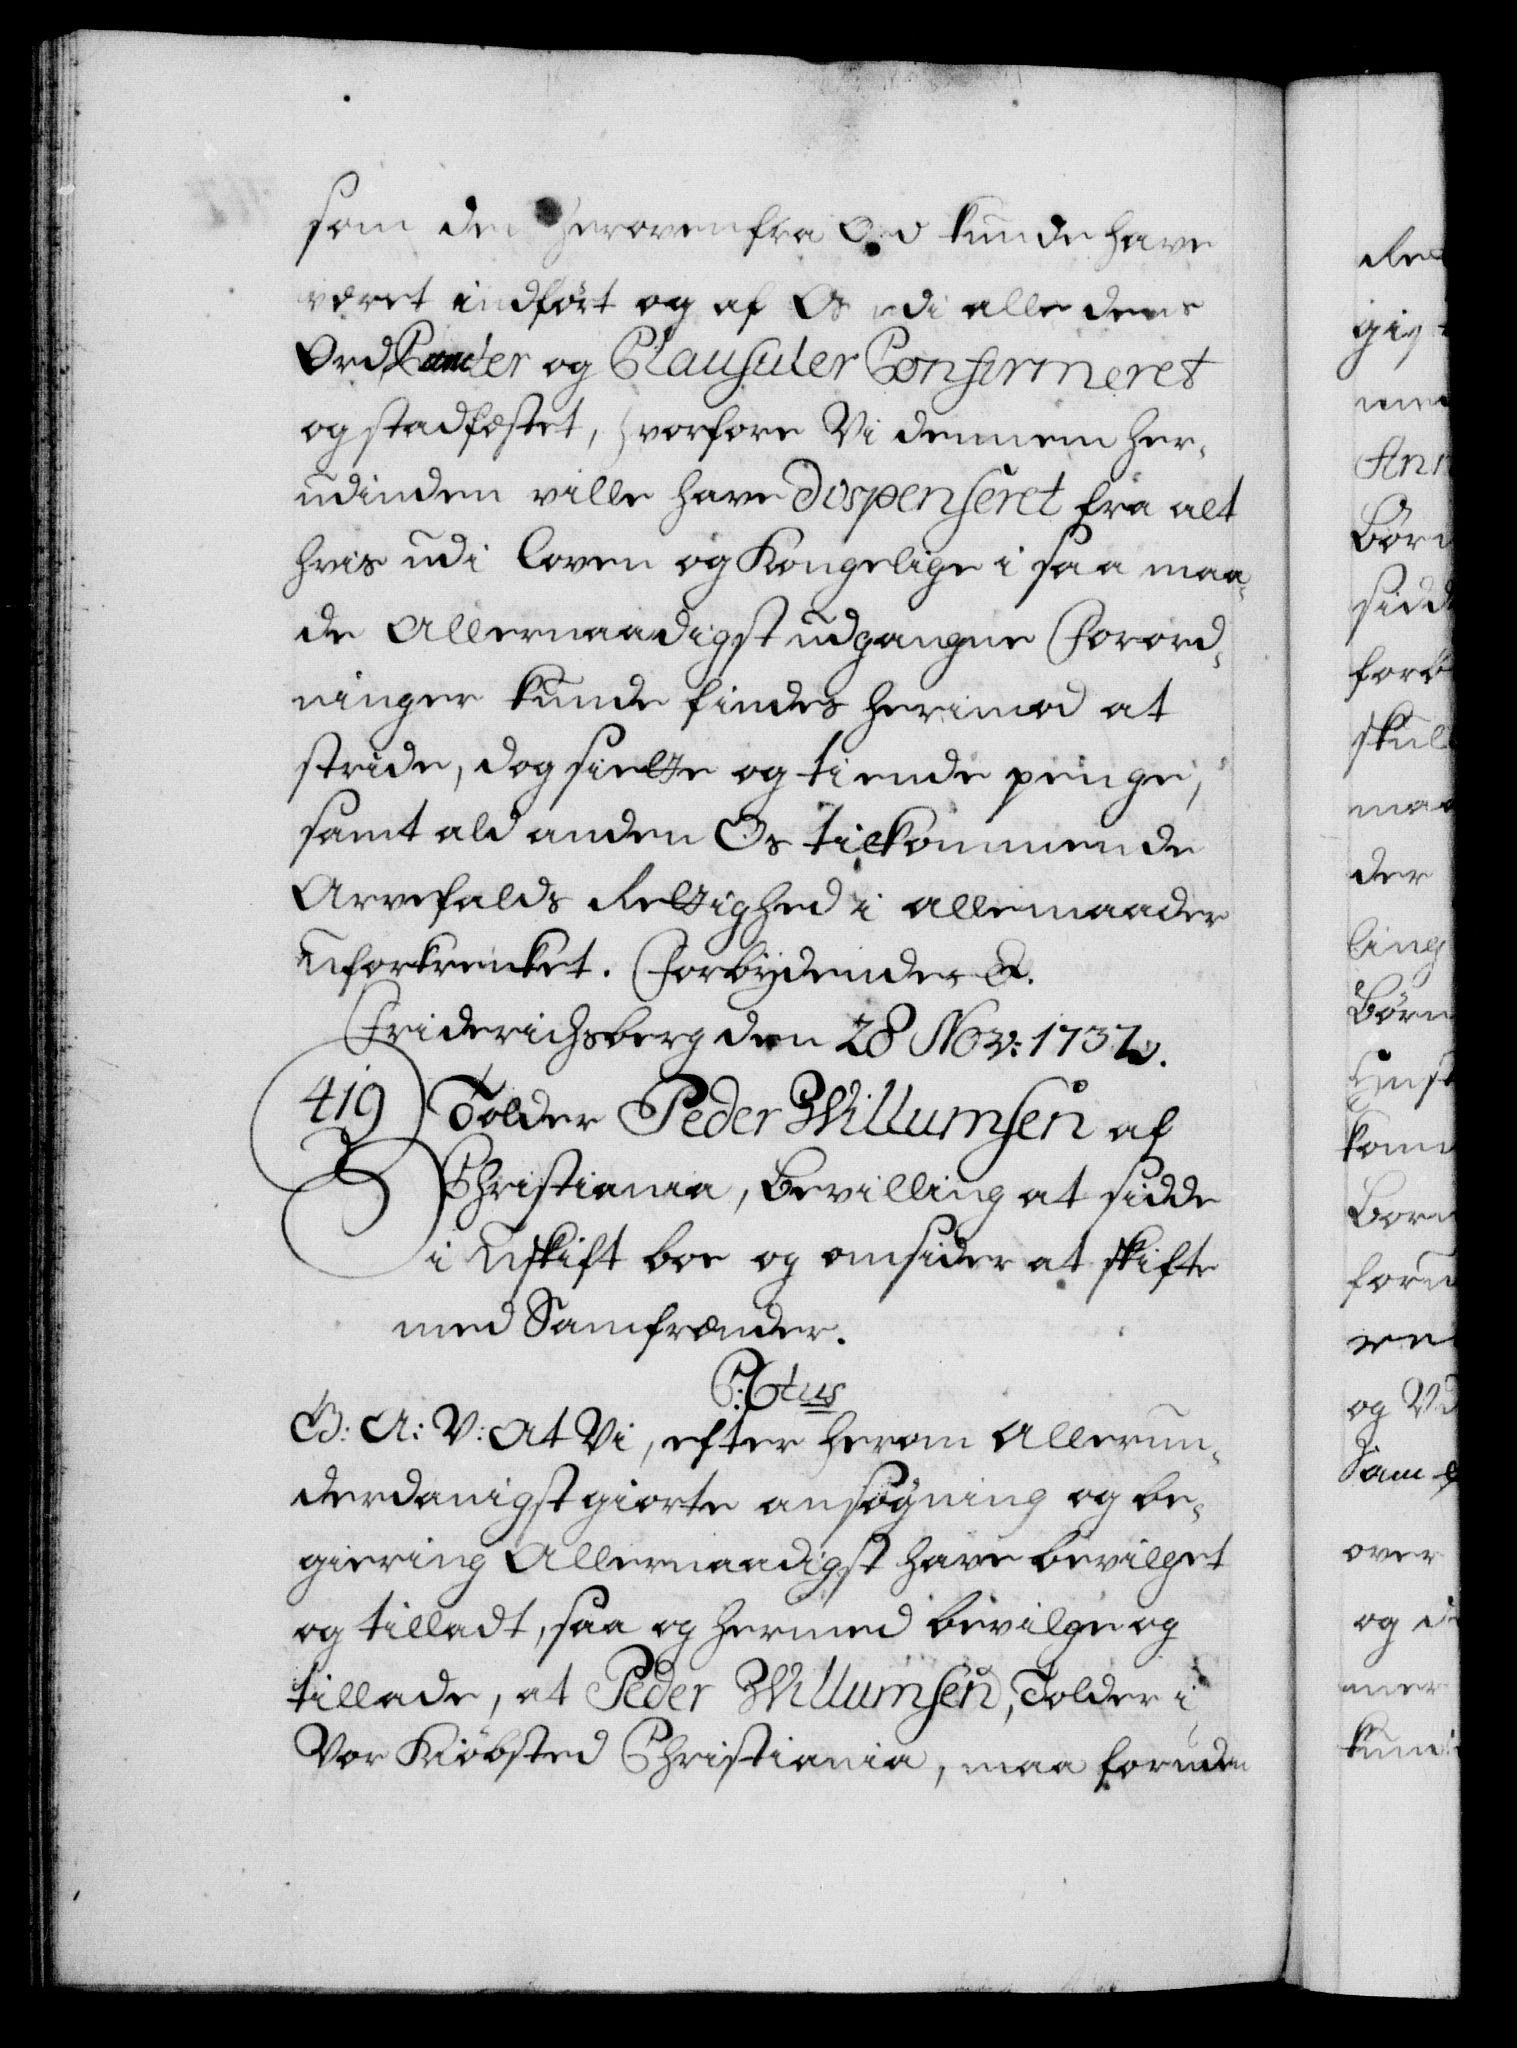 som den herovenfra Ord kunde have
været indført og af Os udi alle dens
Ord, Puncter og Clausuler Confirmeret
og stadfæstet, hvorfore Vi dennem her¬
udinden ville have dispenseret fra alt
hvis udi Loven og Kongelige i saa maa¬
de Allernaadigst udgangne Forord¬
ninger kunde findes herimod at
stride, dog siette og tiende penge,
samt ald anden Os tilkommende
Arvefalds Rettighed i allemaader
uforkrenket. Forbydendes &.
Friderichsberg den 28 Nov: 1732.
419
Tolder Peder Willumsen af
Christiania, Bevilling at sidde
i Uskift boe og omsider at skifte
med Samfrænder.
C: 6tus
G: A: V: At Vi, efter herom Allerun¬
derdanigst giorte ansøgning og be¬
giering Allernaadigst have bevilget
og tilladt, saa og hermed bevilge og
tillade, at Peder Willumsen, Tolder i
Vor Kiøbsted Christiania, maa foruden
giv
Børn
sidd
skul
maa
der
ling
Børn
kom
Børn
og V
Samf
over
og d
mer
kund